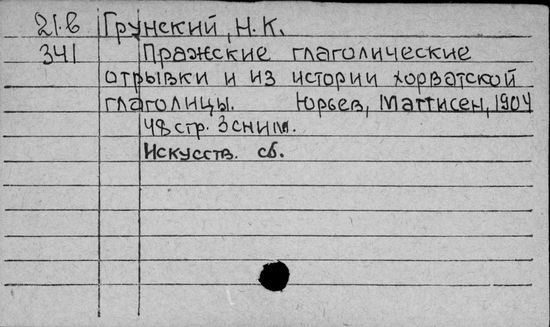 21.в Грунский, Н.К.
341 Пражские глаголические
отрывки и из истории хорватской
глаголицы. Юрьев, Маттисен, 1904
48 стр. 3 сним.
Искусств. сб.